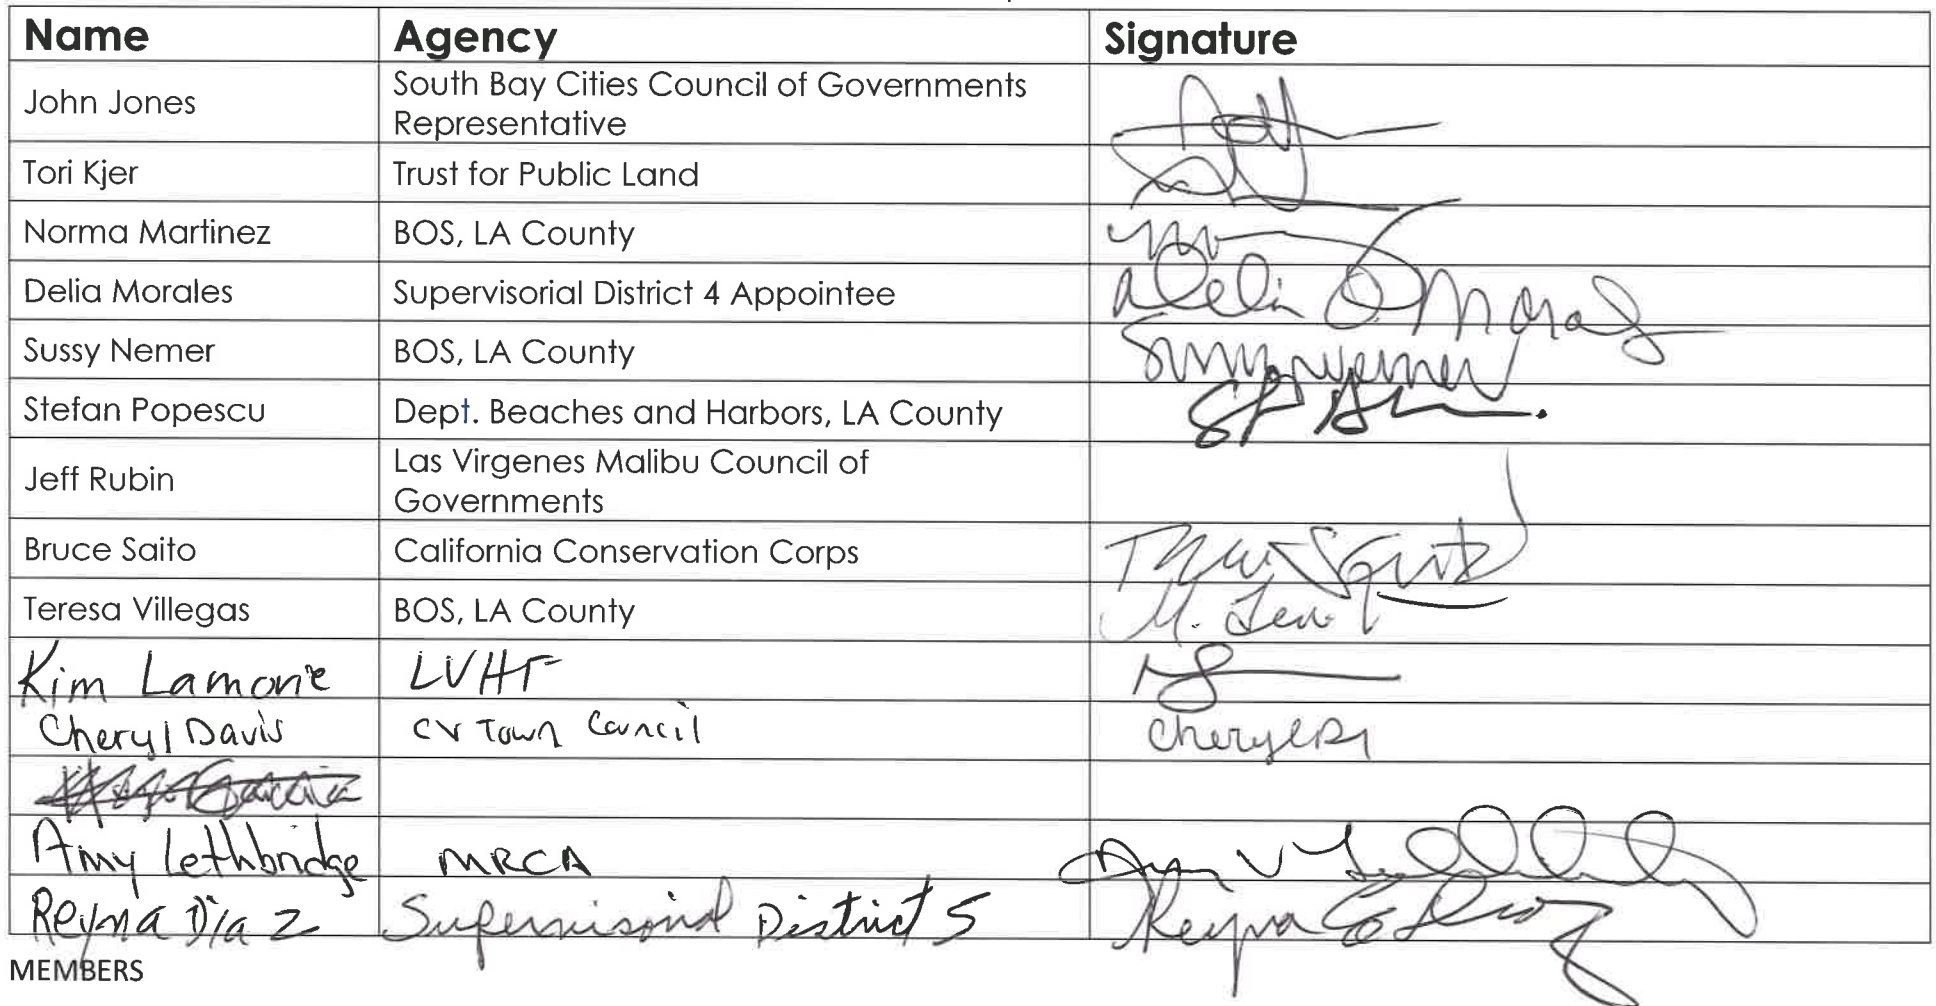 Name Agency Signature
John Jones South Bay Cities Council of Governments
Representative
Tori Kjer Trust for Public Land
Norma Martinez BOS, LA County
Delia Morales Supervisorial District 4 Appointee
Sussy Nemer BOS, LA County
Stefan Popescu Dept. Beaches and Harbors, LA County
Jeff Rubin Las Virgenes Malibu Council of
Governments
Bruce Saito California Conservation Corps
Teresa Villegas BOS, LA County
Kim Lamorie LVHF
Cheryl Davis CV Town Council
Amy Lethbridge MRCA
Reyna Diaz Supervisorial District 5 Reyna
MEMBERS